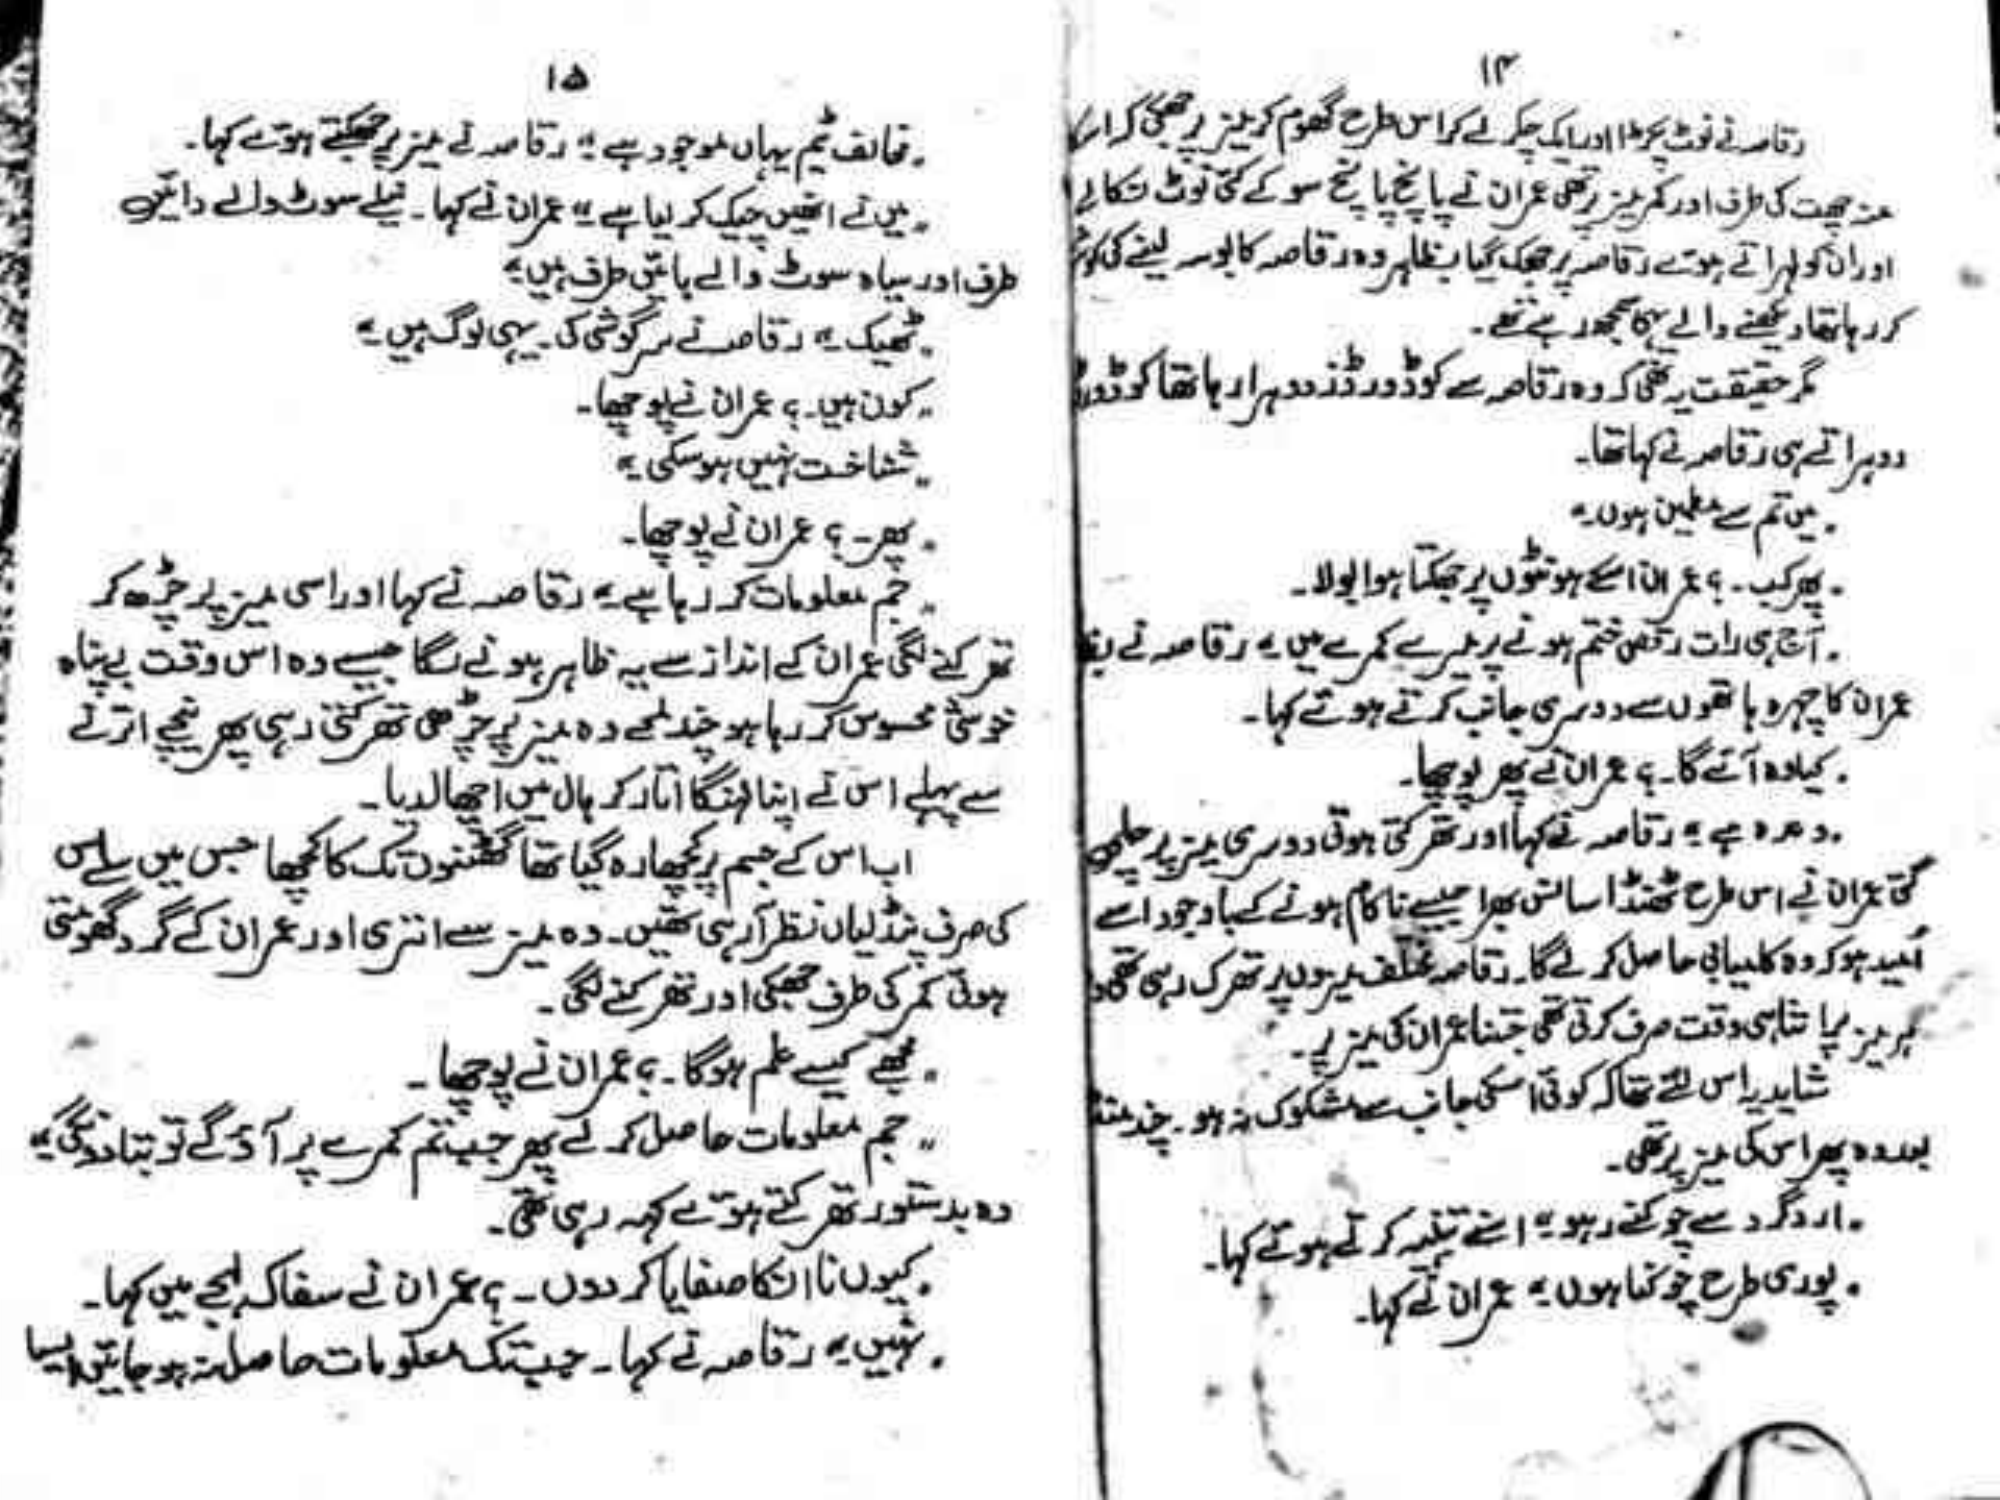 ۱۴
رقاصہ نے نوٹ پکڑا اور ایک چکر لے کر اس طرح گھوم کر میز پر جھکی کہ اس کا
منہ چھت کی طرف اور کمر میز پر تھی عمران نے پانچ پانچ سو کے کئی نوٹ نکالے
اور ان کو لہراتے ہوئے رقاصہ پر جھک گیا بظاہر وہ رقاصہ کا بوسہ لینے کی
کر رہا تھا دیکھنے والے یہی سمجھ رہے تھے۔
مگر حقیقت یہ تھی کہ وہ رقاصہ سے کوڈ ورڈز دوہرا رہا تھا کوڈ
دوہراتے ہی رقاصہ نے کہا تھا۔
"میں تم سے مطمئن ہوں"
"پھر کب۔؟ عمران اسکے ہونٹوں پر جھکتا ہوا بولا۔
"آج ہی رات رقص ختم ہونے پر میرے کمرے میں" رقاصہ نے
عمران کا چہرہ ہاتھوں سے دوسری جانب کرتے ہوئے کہا۔
"کیا وہ آئے گا۔؟ عمران نے پھر پوچھا۔
"وعدہ ہے" رقاصہ نے کہا اور تھرکتی ہوئی دوسری میز پر چلی
گئی عمران نے اس طرح ٹھنڈا سانس بھرا جیسے ناکام ہونے کے باوجود اسے
اُمید ہو کہ وہ کامیابی حاصل کر لے گا۔ رقاصہ مختلف میزوں پر تھرک رہی تھی
ہر میز پر اتنا ہی وقت صرف کرتی تھی جتنا عمران کی میز پر۔
شاید یہ اس لئے تھا کہ کوئی اسکی جانب سے مشکوک نہ ہو۔ چند
بعد وہ پھر اس کی میز پر تھی۔
"اردگرد سے چوکنے رہو" اسنے تنبیہ کرتے ہوئے کہا۔
"پوری طرح چوکنا ہوں" عمران نے کہا۔
۱۵
"مخالف ٹیم یہاں موجود ہے" رقاصہ نے میز پر جھکتے ہوئے کہا۔
"میں نے انھیں چیک کر لیا ہے" عمران نے کہا۔ نیلے سوٹ والے دائیں
طرف اور سیاہ سوٹ والے بائیں طرف ہیں"
"ٹھیک" رقاصہ نے سرگوشی کی۔ یہی لوگ ہیں"
"کون ہیں۔؟ عمران نے پوچھا۔
"شناخت نہیں ہو سکی"
"پھر۔؟ عمران نے پوچھا۔
"جم معلومات کر رہا ہے" رقاصہ نے کہا اور اسی میز پر چڑھ کر
تھرکنے لگی عمران کے انداز سے یہ ظاہر ہونے لگا جیسے وہ اس وقت بے پناہ
خوشی محسوس کر رہا ہو چند لمحے وہ میز پر چڑھی تھرکتی رہی پھر نیچے اترنے
سے پہلے اس نے اپنا لہنگا اتار کر ہال میں اچھال دیا۔
اب اس کے جسم پر کچھا رہ گیا تھا گھٹنوں تک کا کچھا جس میں سے اس
کی صرف پنڈلیاں نظر آ رہی تھیں۔ وہ میز سے اتری اور عمران کے گرد گھومتی
ہوئی کمر کی طرف جھکی اور تھرکنے لگی۔
"مجھے کیسے علم ہوگا۔؟ عمران نے پوچھا۔
"جم معلومات حاصل کر لے پھر جب تم کمرے پر آؤ گے تو بتا دونگی"
وہ بدستور تھرکتے ہوئے کہہ رہی تھی۔
"کیوں نا انکا صفایا کر دوں۔؟ عمران نے سفاک لہجے میں کہا۔
"نہیں" رقاصہ نے کہا۔ جب تک معلومات حاصل نہ ہو جائیں ایسا